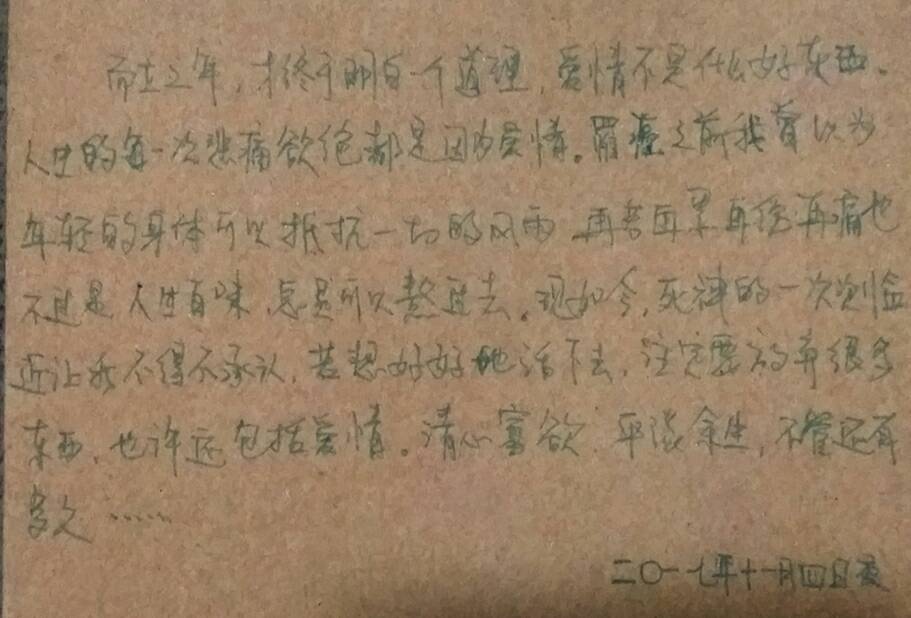 而立之年，才终于明白一个道理，爱情不是什么好东西、
人生的每一次悲痛欲绝都是因为爱情。罹癌之前我曾以为
年轻的身体可以抵抗一切的风雨 再苦再累再伤再痛也
不过是人生百味，总是可以熬过去。现如今，死神的一次次临
近让我不得不承认，若想好好地活下去，注定要放弃很多
东西，也许还包括爱情。清心寡欲 平淡余生，不管还有
多久……
二〇一七年十一月四日夜